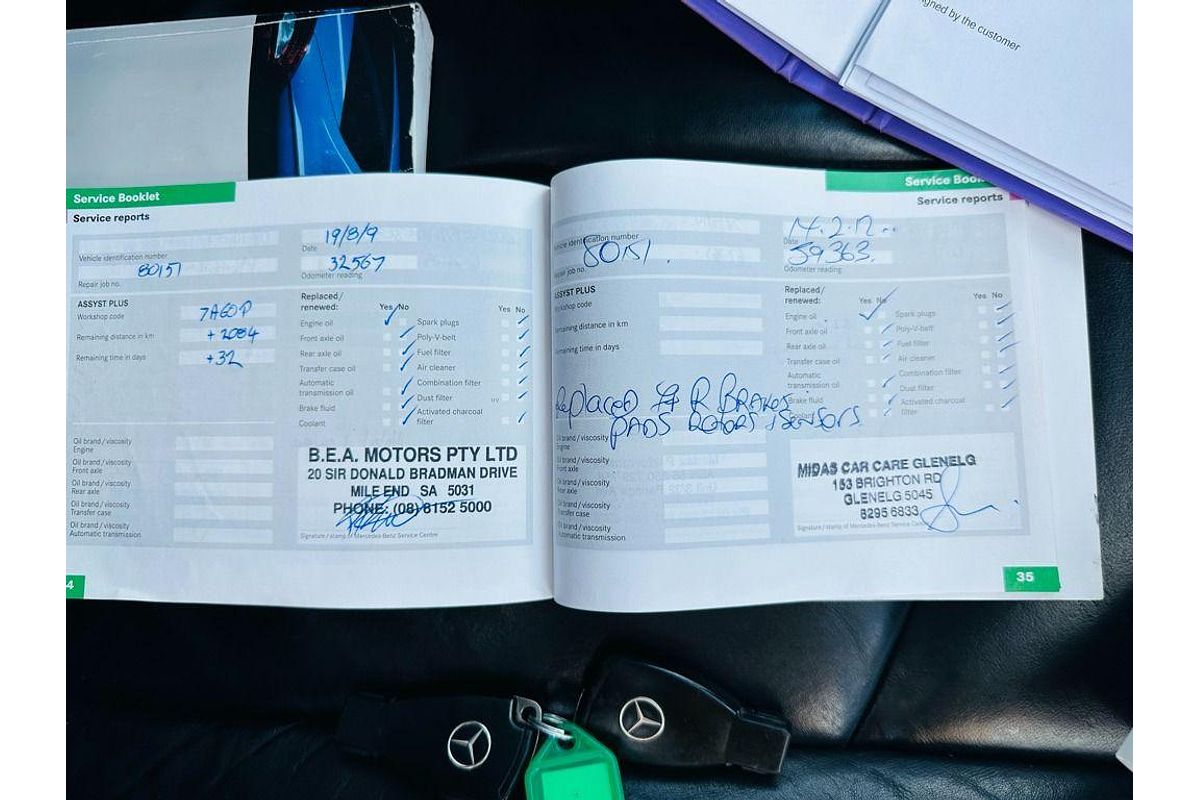 igned by the customer
Service Booklet
Service reports
19/8/9
Date
Vehicle identification number
80151
32567
Odometer reading
Repair job no.
ASSYST PLUS
Workshop code
Remaining distance in km
+2084
Remaining time in days
+32
Replaced/
renewed:
Yes No
Yes No
Engine oil
Spark plugs
Front axle oil
Poly-V-belt
Rear axle oil
Fuel filter
Transfer case oil
Air cleaner
Automatic
transmission oil
Combination filter
Dust filter
Brake fluid
Activated charcoal
filter
Coolant
Oil brand/viscosity
Engine
Oil brand/viscosity
Front axle
Oil brand/viscosity
Rear axle
Oil brand/viscosity
Transfer case
Oil brand/viscosity
Automatic transmission
B.E.A. MOTORS PTY LTD
20 SIR DONALD BRADMAN DRIVE
MILE END SA 5031
PHONE: (08) 8152 5000
Signature/stamp of Mercedes-Benz Service Centre
4
Service Boo
Service reports
14.2.12
Date
Vehicle identification number
80151.
59363.
Odometer reading
Repair job no.
ASSYST PLUS
Workshop code
Remaining distance in km
Remaining time in days
Replaced/
renewed:
Yes No
Yes No
Engine oil
Spark plugs
Front axle oil
Poly-V-belt
Rear axle oil
Fuel filter
Transfer case oil
Air cleaner
Automatic
transmission oil
Combination filter
Dust filter
Brake fluid
Activated charcoal
filter
Coolant
Replaced F & R Brakes
PADS ROTORS & SENSORS
Oil brand/viscosity
Engine
Oil brand/viscosity
Front axle
Oil brand/viscosity
Rear axle
Oil brand/viscosity
Transfer case
Oil brand/viscosity
Automatic transmission
MIDAS CAR CARE GLENELG
153 BRIGHTON RD
GLENELG 5045
8295 6833
Signature/stamp of Mercedes-Benz Service Centre
35